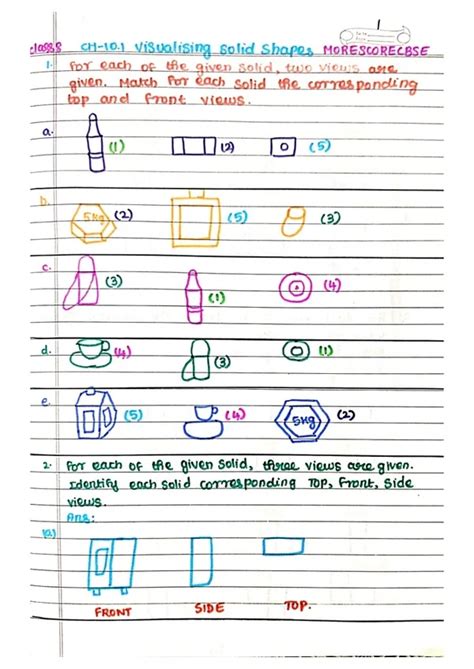 1
class 8 CH-10.1 Visualising Solid Shapes MORESCORECBSE
1. For each of the given solid, two views are
given. Match for each solid the corresponding
top and front views.
a. (1) (2) (5)
b. 5kg (2) (5) (3)
c. (3) (1) (4)
d. (4) (3) (1)
e. (5) (4) 5kg (2)
2. For each of the given solid, three views are given.
Identify each solid corresponding Top, Front, Side
views.
Ans:
(a)
FRONT SIDE TOP.